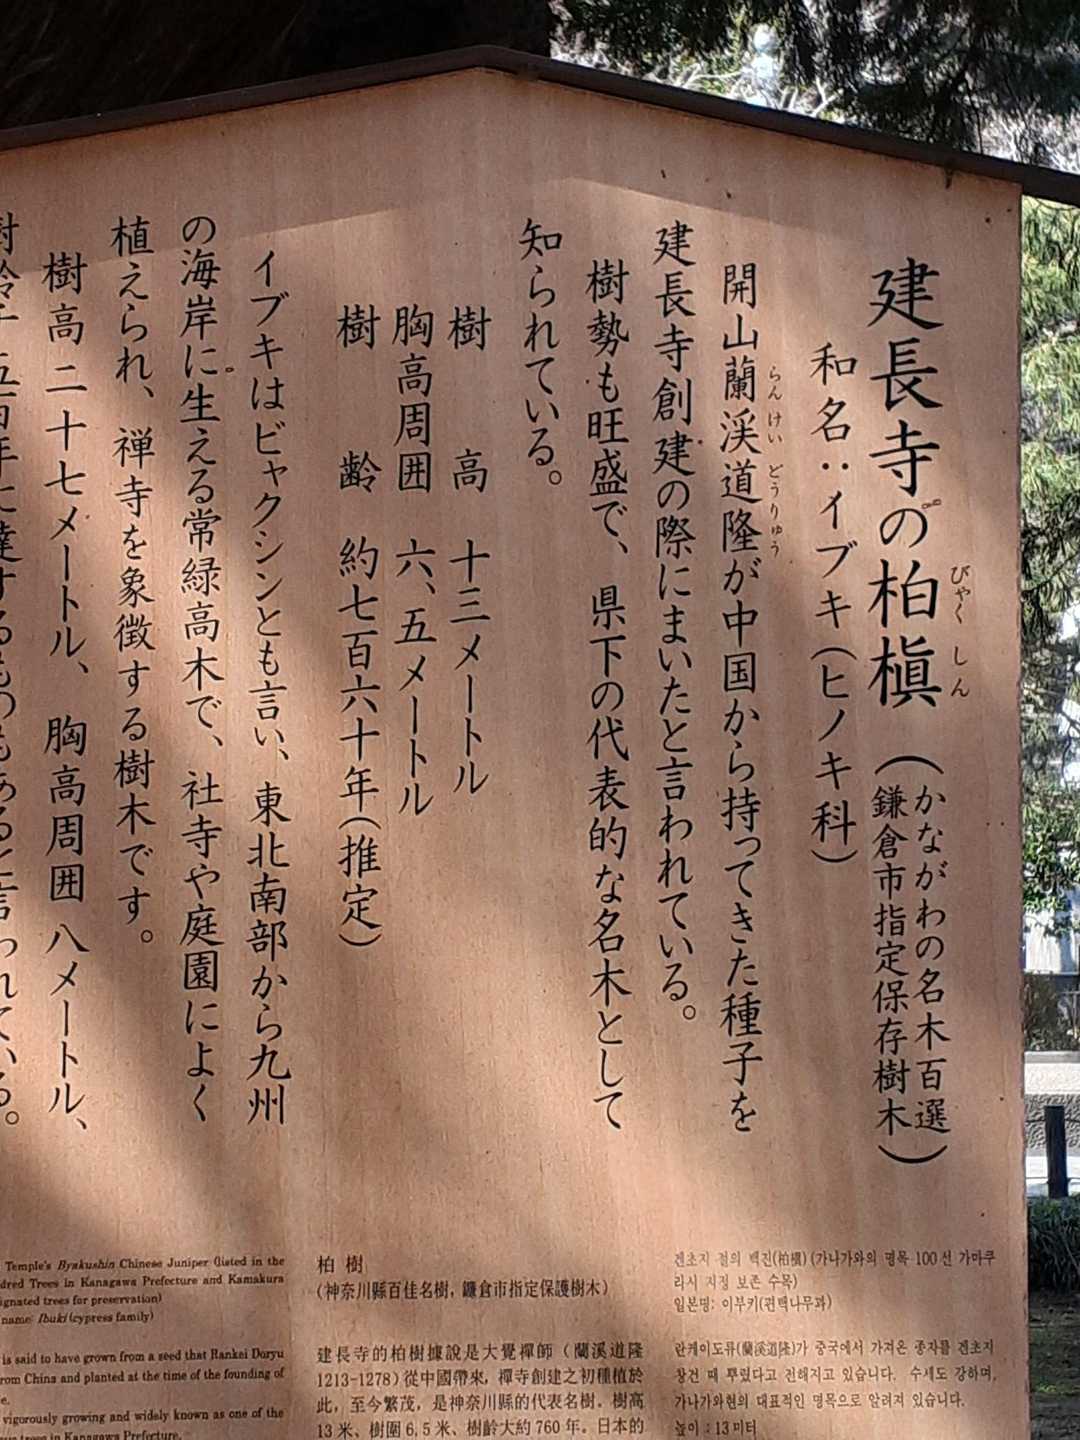 建長寺の柏槇(かながわの名木百選
鎌倉市指定保存樹木)
びゃく しん
和名：イブキ(ヒノキ科)
開山蘭渓道隆が中国から持ってきた種子を
らん けい どうりゅう
建長寺創建の際にまいたと言われている。
樹勢も旺盛で、県下の代表的な名木として
知られている。
樹 高 十三メートル
胸高周囲 六、五メートル
樹 齢 約七百六十年(推定)
イブキはビャクシンとも言い、東北南部から九州
の海岸に生える常緑高木で、社寺や庭園によく
植えられ、禅寺を象徴する樹木です。
樹高二十七メートル、胸高周囲八メートル、
に達するものもあると言われている。
Temple's Byakushin Chinese Juniper (listed in the
dred Trees in Kanagawa Prefecture and Kamakura
ignated trees for preservation)
name: Ibuki (cypress family)
is said to have grown from a seed that Rankei Doryu
rom China and planted at the time of the founding of
e.
vigorously growing and widely known as one of the
trees in Kanagawa Prefecture.
柏 樹
(神奈川縣百佳名樹，鎌倉市指定保護樹木)
建長寺的柏樹據說是大覺禪師（蘭溪道隆
1213-1278）從中國帶來，禪寺創建之初種植於
此，至今繁茂，是神奈川縣的代表名樹。樹高
13 米、樹圍 6,5 米、樹齡大約 760 年。日本的
겐초지 절의 백진(柏槇) (가나가와의 명목 100선 가마쿠
라시 지정 보존 수목)
일본명: 이부키(편백나무과)
란케이도류(蘭溪道隆)가 중국에서 가져온 종자를 겐초지
창건 때 뿌렸다고 전해지고 있습니다. 수세도 강하며,
가나가와현의 대표적인 명목으로 알려져 있습니다.
높이 : 13 미터